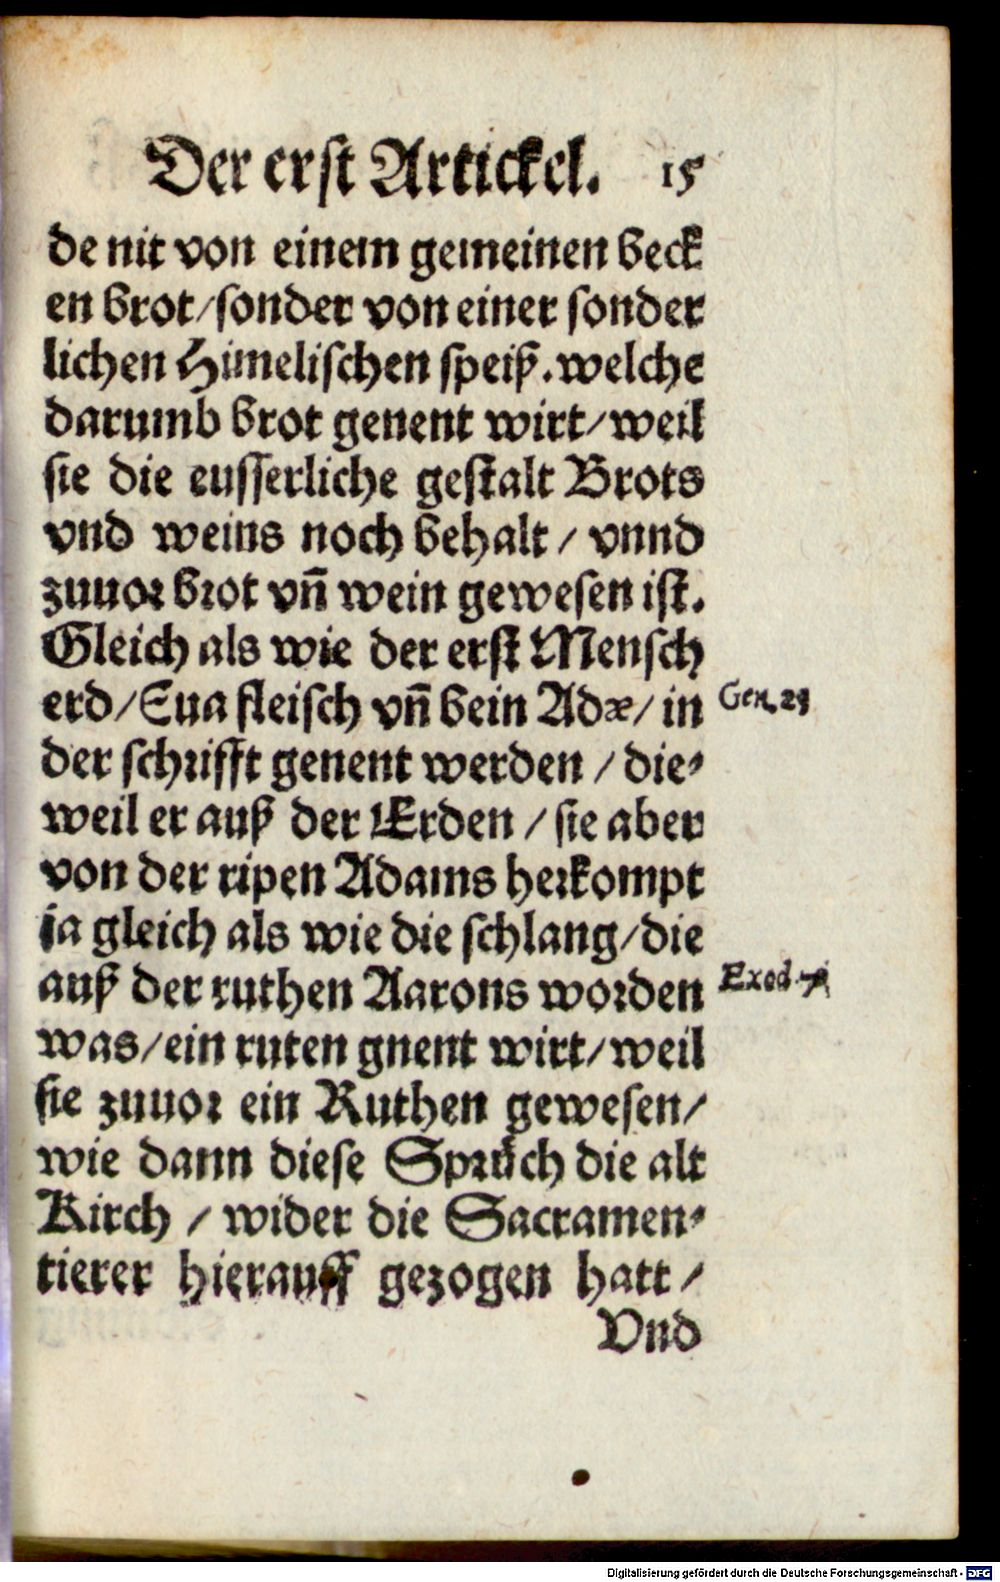 Der erst Artickel. 15
de nit von einem gemeinen beck
en brot/sonder von einer sonder
lichen Himelischen speiß. welche
darumb brot genent wirt/weil
sie die eusserliche gestalt Brots
vnd weins noch behalt / vnnd
zuuor brot vn̄ wein gewesen ist.
Gleich als wie der erst Mensch
erd/Eua fleisch vn̄ bein Adæ/in
der schrifft genent werden / die-
weil er auß der Erden / sie aber
von der ripen Adams herkompt
ja gleich als wie die schlang/die
auß der ruthen Aarons worden
was/ein ruten gnent wirt/weil
sie zuuor ein Ruthen gewesen/
wie dann diese Sprüch die alt
Kirch / wider die Sacramen-
tierer hierauff gezogen hatt /
Vnd
Gen.
Exod.
Digitalisierung gefördert durch die Deutsche Forschungsgemeinschaft - DFG